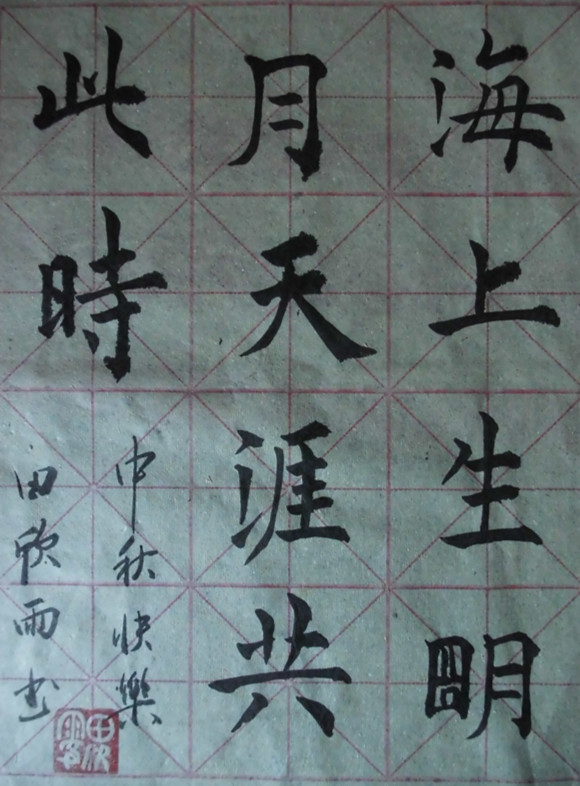 海上生明
月天涯共
此時
中秋快樂
田欣雨书